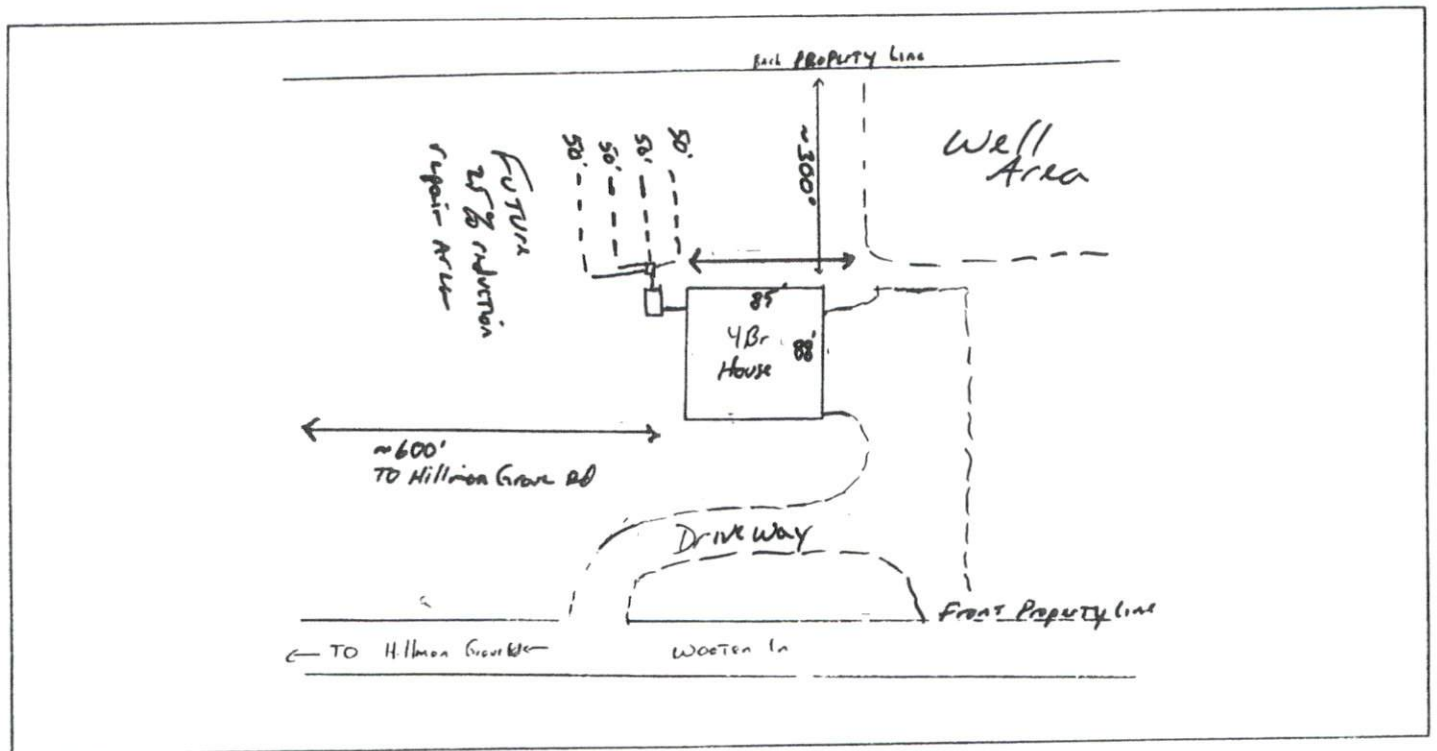 Back PROPERTY Line
Well
Area
~300'
50'
50'
50'
50'
FUTURE
25% reduction
repair Area
85'
4Br
House
88'
~600'
TO Hillmon Grove Rd
Drive Way
Front Property Line
← TO Hillmon Grove Rd ←
Wooten ln